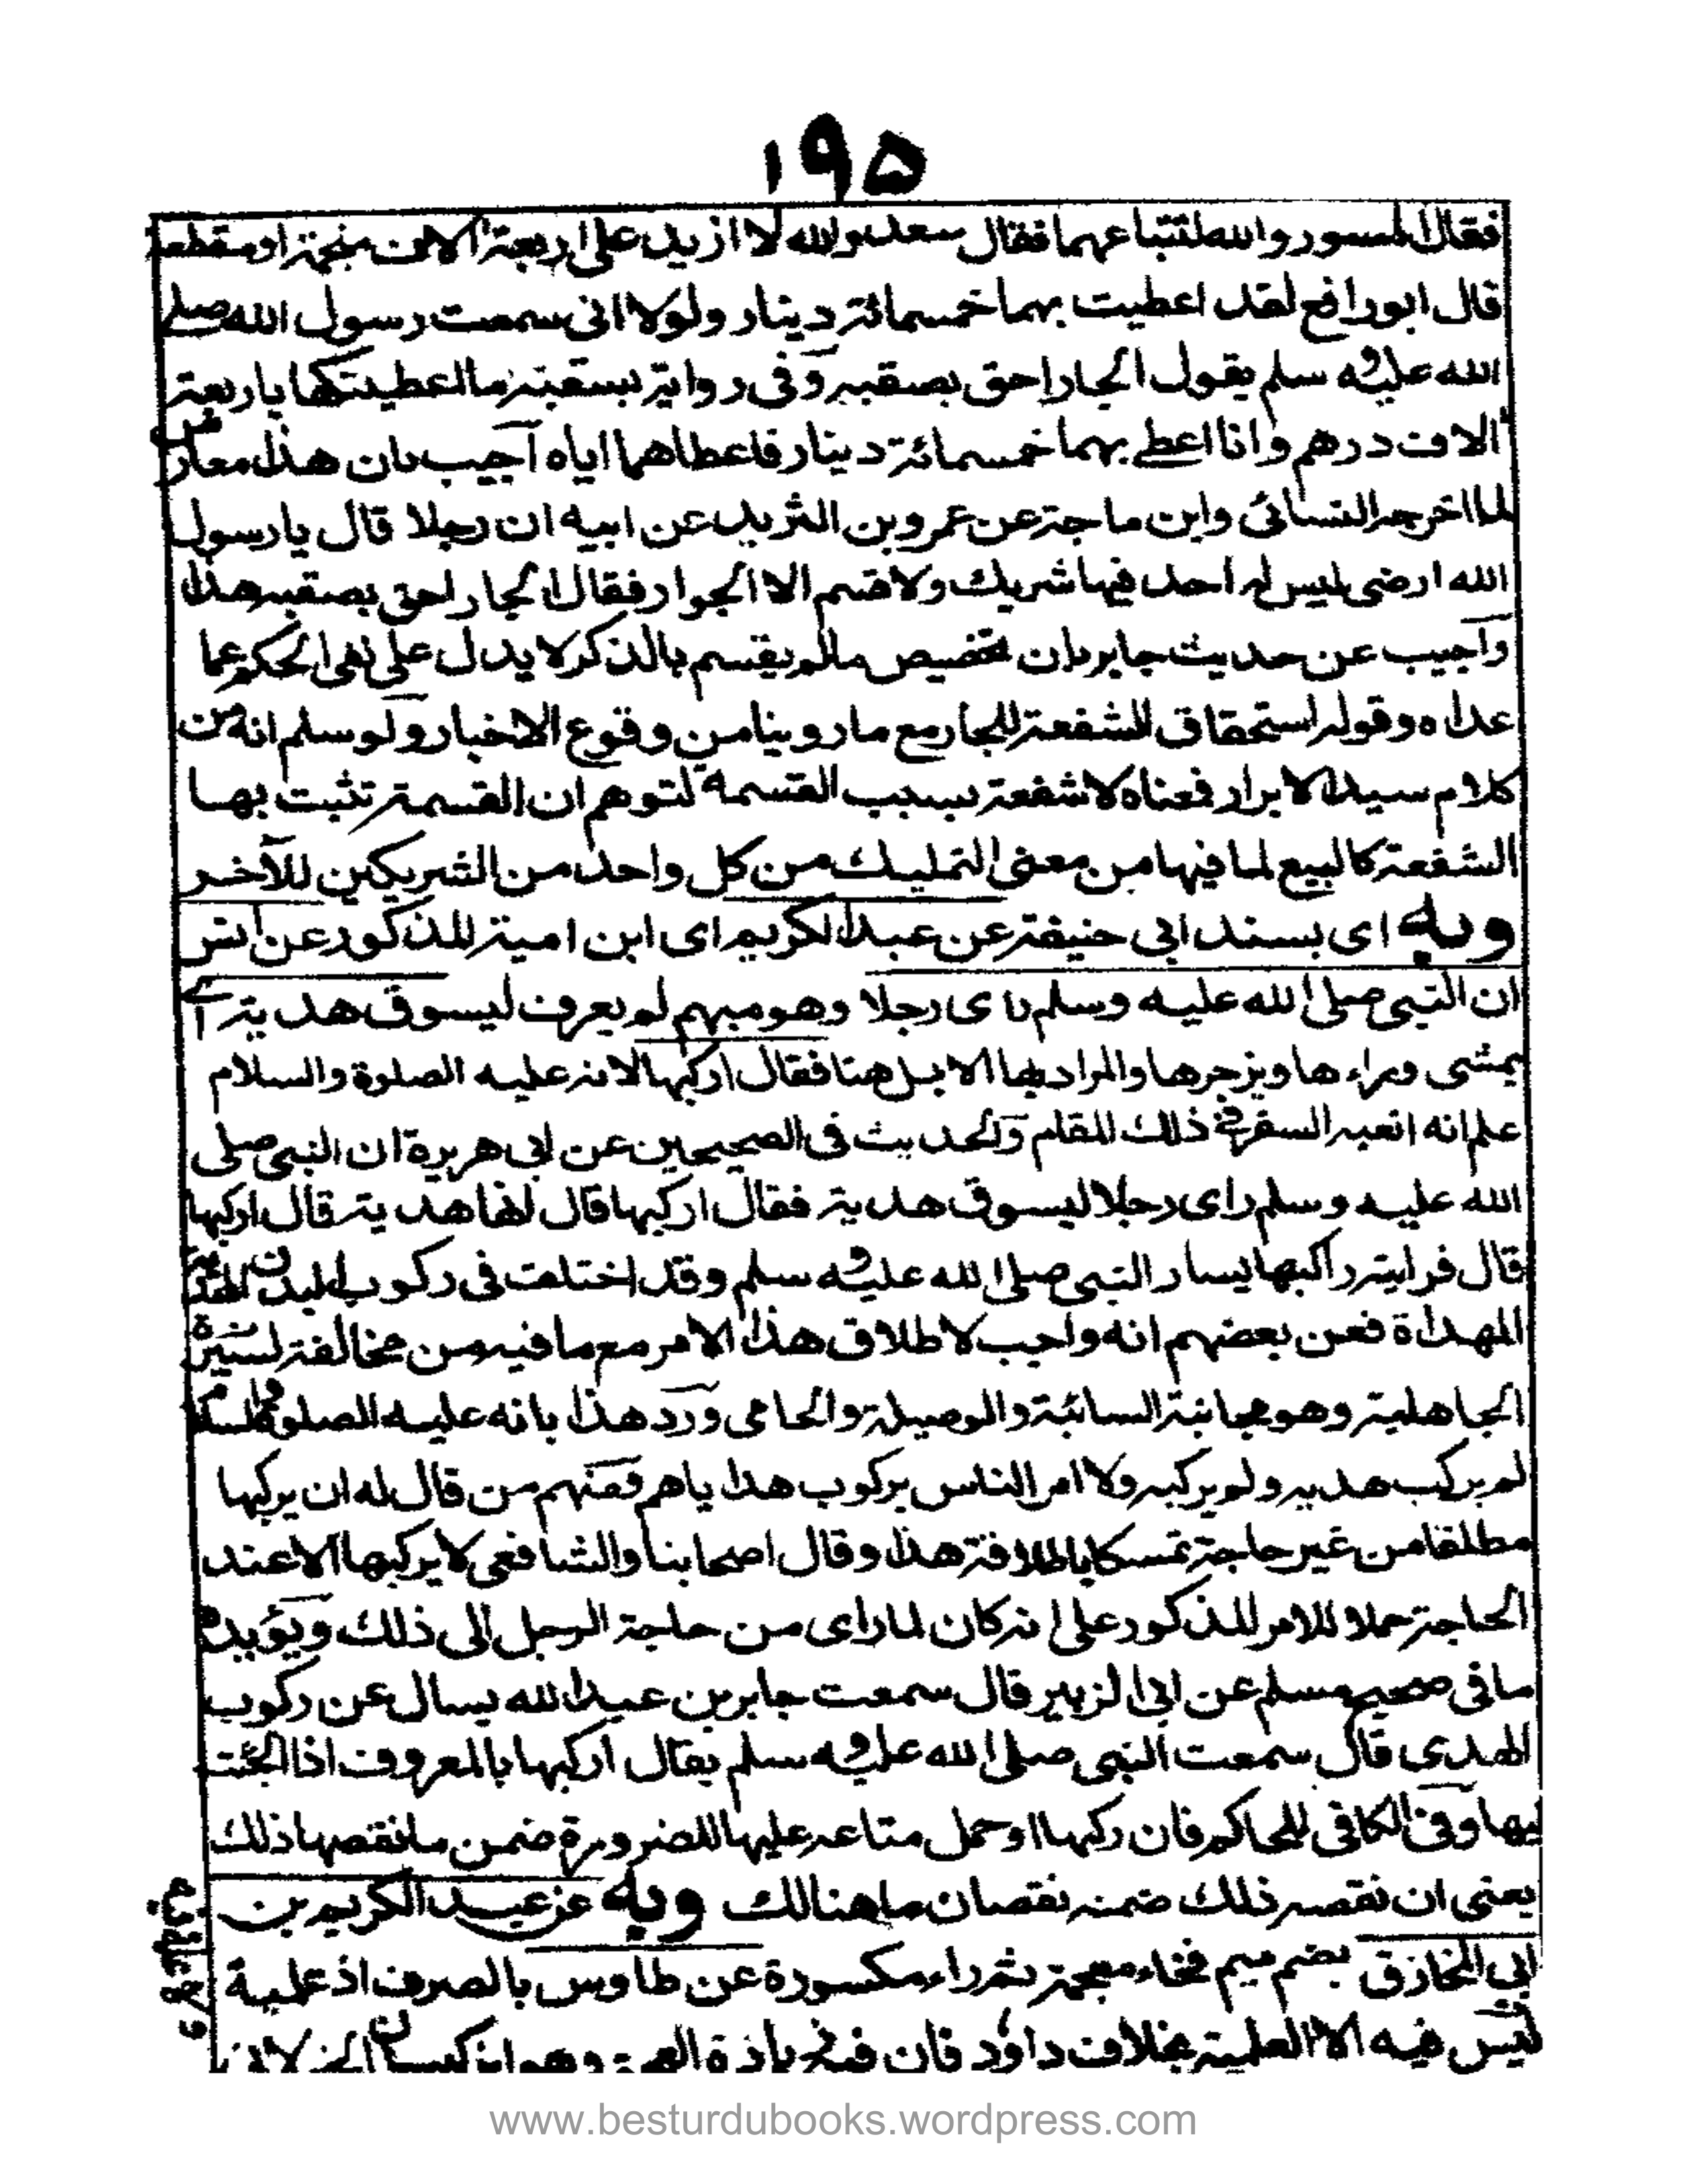 ١٩٥
فقال المسور والله لتبتاعهما فقال سعد والله لا ازيد على اربعة الاف منجمة او مقطعة
قال ابو رافع لقد اعطيت بهما خمسمائة دينار ولولا انى سمعت رسول الله صلى
الله عليه و سلم يقول الجار احق بصقبه وفى رواية بسقبه ما اعطيتكها باربعة
الاف درهم وانا اعطى بهما خمسمائة دينار فاعطاهما اياه اجيب بان هذا معارض
لما اخرجه النسائى وابن ماجة عن عمرو بن الشريد عن ابيه ان رجلا قال يا رسول
الله ارضى ليس لاحد فيها شريك ولا قسم الا الجوار فقال الجار احق بصقبه هذا
واجيب عن حديث جابر بان تخصيص ما لم يقسم بالذكر لا يدل على نفى الحكم عما
عداه وقوله استحقاق الشفعة للجار مع ما روينا من وقوع الاخبار ولو سلم انه من
كلام سيد الابرار فمعناه لا شفعة بسبب القسمة لتوهم ان القسمة تثبت بها
الشفعة كالبيع لما فيها من معنى التمليك من كل واحد من الشريكين للآخر
وبه اى بسند ابى حنيفة عن عبد الكريم اى ابن امية المذكور عن انس
ان النبى صلى الله عليه وسلم راى رجلا وهو مبهم لم يعرف يسوق هدية اى
يمشى وراءها ويزجرها والمراد بها الابل هنا فقال اركبها لانه عليه الصلوة والسلام
علم انه اتعبه السفر فى ذلك المقام والحديث فى الصحيحين عن ابى هريرة ان النبى صلى
الله عليه وسلم راى رجلا يسوق هدية فقال اركبها قال انها هدية قال اركبها
قال فرايته راكبها يساير النبى صلى الله عليه و سلم وقد اختلف فى ركوب البدن
المهداة فعن بعضهم انه واجب لاطلاق هذا الامر مع ما فيه من مخالفة لسيرة
الجاهلية وهو مجانبة السائبة والوصيلة والحامى ورد هذا بانه عليه الصلوة والسلام
لم يركب هديه ولم يركبه ولا امر الناس بركوب هداياهم ومنهم من قال له ان يركبها
مطلقا من غير حاجة تمسكا باطلاقة هذا وقال اصحابنا والشافعى لا يركبها الا عند
الحاجة حملا للامر المذكور على انه كان لما راى من حاجة الرجل الى ذلك ويؤيده
ما فى صحيح مسلم عن ابى الزبير قال سمعت جابر بن عبد الله يسال عن ركوب
الهدى قال سمعت النبى صلى الله عليه و سلم يقال اركبها بالمعروف اذا الجئت
اليها وفى الكافى للحاكم فان ركبها او حمل متاعه عليها للضرورة ضمن ما نقصها ذلك
يعنى ان نقصه ذلك ضمنه نقصان ما هنالك وبه عن عبد الكريم بن
ابى المخارق بضم ميم فخاء معجمة ثم راء مكسورة عن طاوس بالصرف اذ علية
ليس فيه الا العلمية بخلاف داؤد فان فيه زيادة العجمة وهو ابن كيسان
www.besturdubooks.wordpress.com